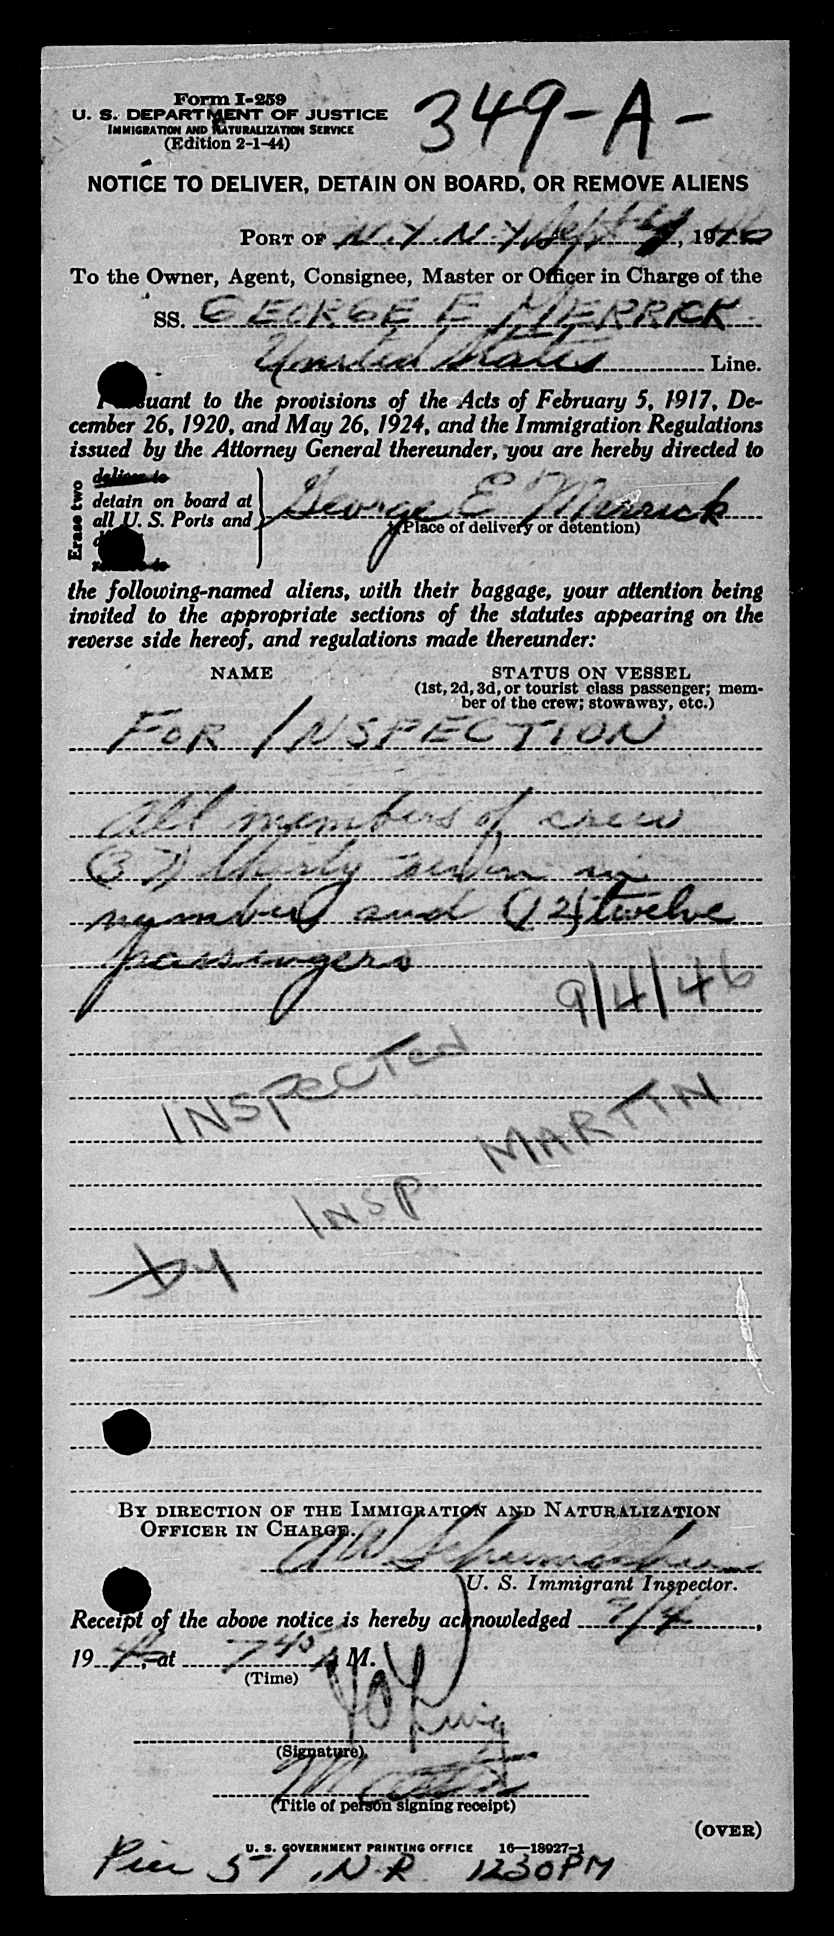 Form I-259
U. S. DEPARTMENT OF JUSTICE
IMMIGRATION AND NATURALIZATION SERVICE
(Edition 2-1-44)
349-A-
NOTICE TO DELIVER, DETAIN ON BOARD, OR REMOVE ALIENS
PORT OF N.Y. N.Y. Sept 4, 1946
To the Owner, Agent, Consignee, Master or Officer in Charge of the
SS. GEORGE E MERRICK
United States Line.
Pursuant to the provisions of the Acts of February 5, 1917, De-
cember 26, 1920, and May 26, 1924, and the Immigration Regulations
issued by the Attorney General thereunder, you are hereby directed to
Erase two
deliver to
detain on board at
all U. S. Ports and
George E Merrick
(Place of delivery or detention)
remove to
the following-named aliens, with their baggage, your attention being
invited to the appropriate sections of the statutes appearing on the
reverse side hereof, and regulations made thereunder:
NAME
STATUS ON VESSEL
(1st, 2d, 3d, or tourist class passenger; mem-
ber of the crew; stowaway, etc.)
FOR INSPECTION
All members of crew
(37) thirty seven in
number and (12) twelve
passengers
9/4/46
INSPECTED
by INSP. MARTIN
BY DIRECTION OF THE IMMIGRATION AND NATURALIZATION
OFFICER IN CHARGE.
U. S. Immigrant Inspector.
Receipt of the above notice is hereby acknowledged 9/4,
1946, at 7 45 A M.
(Time)
(Signature)
(Title of person signing receipt)
(OVER)
U. S. GOVERNMENT PRINTING OFFICE 16—18927-1
Pier 51, N.R. 1230PM